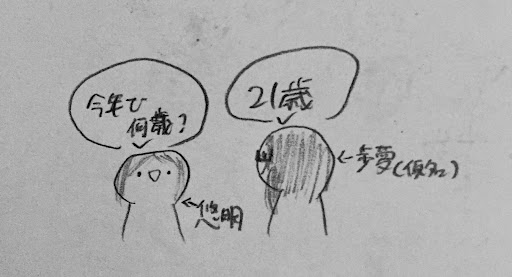 今年で
何歳？
21歳
←歩夢(仮名)
←悠明